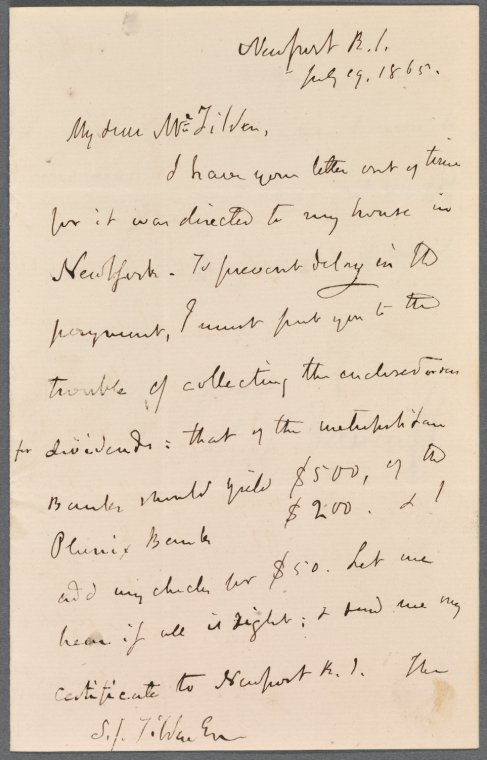 Newport R.I.
July 29. 1865.
My dear Mr Tilden,
I have your letter out of time
for it was directed to my house in
NewYork. To prevent delay in the
payment, I must put you to the
trouble of collecting the enclosed orders
for dividends: that of the metropolitan
Bank should yield $500, of the
Phenix Bank $200. & I
add my check for $50. Let me
hear if all is right; & send me my
certificate to Newport R.I. The
S.J. Tilden Esq